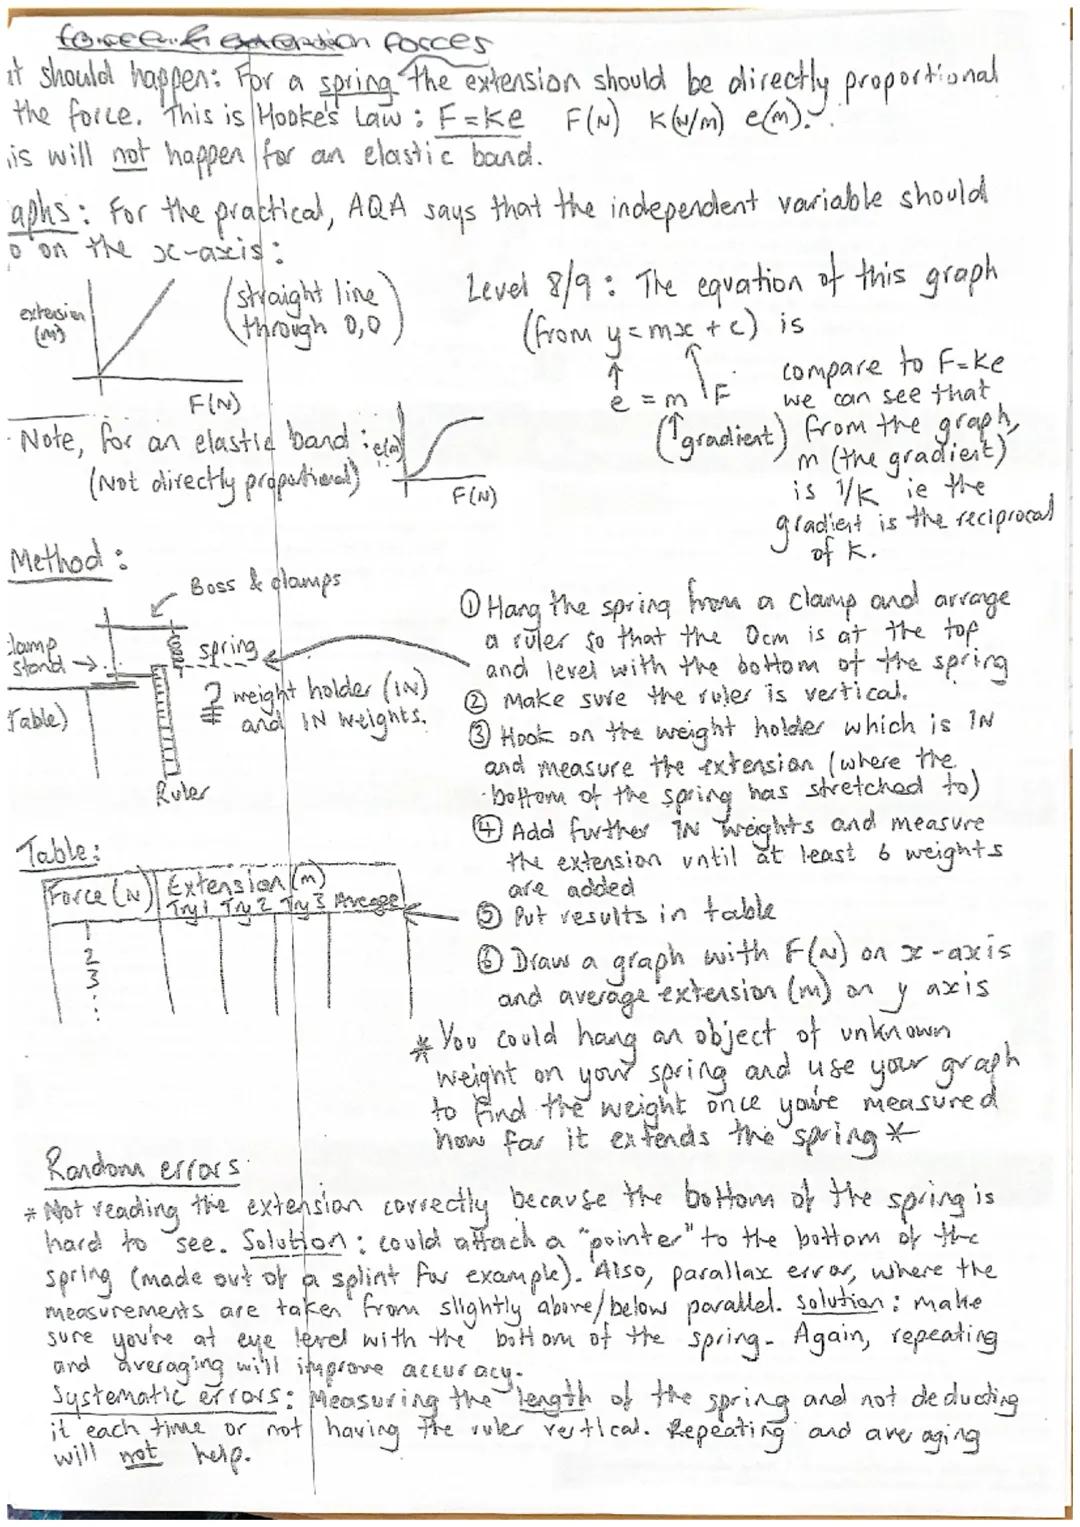 forces
at should happen: For a spring the extension should be directly proportional
the force. This is Hooke's Law: F=Ke F(N) K(N/m) e(m).
is will not happen for an elastic band.
aphs: For the practical, AQA says that the independent variable should
o on the x-axis:
extension
(m)
F(N)
(straight line
through 0,0)
Level 8/9: The equation of this graph
(from y=mx+c) is
e = m F
(gradient)
compare to F=Ke
we can see that
from the graph,
m (the gradient)
is 1/K ie the
gradient is the reciprocal
of K.
Note, for an elastic band:
(Not directly proportional)
e(m)
F(N)
Method:
Boss & clamps
clamp
stand
spring
Table)
weight holder (1N)
and 1N weights.
Ruler
① Hang the spring from a clamp and arrange
a ruler so that the 0cm is at the top
and level with the bottom of the spring
② Make sure the ruler is vertical.
③ Hook on the weight holder which is 1N
and measure the extension (where the
bottom of the spring has stretched to)
④ Add further 1N weights and measure
the extension until at least 6 weights
are added
⑤ Put results in table
⑥ Draw a graph with F(N) on x-axis
and average extension (m) on y axis
* You could hang an object of unknown
weight on your spring and use your graph
to find the weight once you've measured
how far it extends the spring *
Table:
Force (N) Extension (m)
Try 1 Try 2 Try 3 Average
1
2
3
Random errors
* Not reading the extension correctly because the bottom of the spring is
hard to see. Solution: could attach a "pointer" to the bottom of the
spring (made out of a splint for example). Also, parallax error, where the
measurements are taken from slightly above/below parallel. Solution: make
sure you're at eye level with the bottom of the spring. Again, repeating
and averaging will improve accuracy.
Systematic errors: Measuring the length of the spring and not deducting
it each time or not having the ruler vertical. Repeating and averaging
will not help.